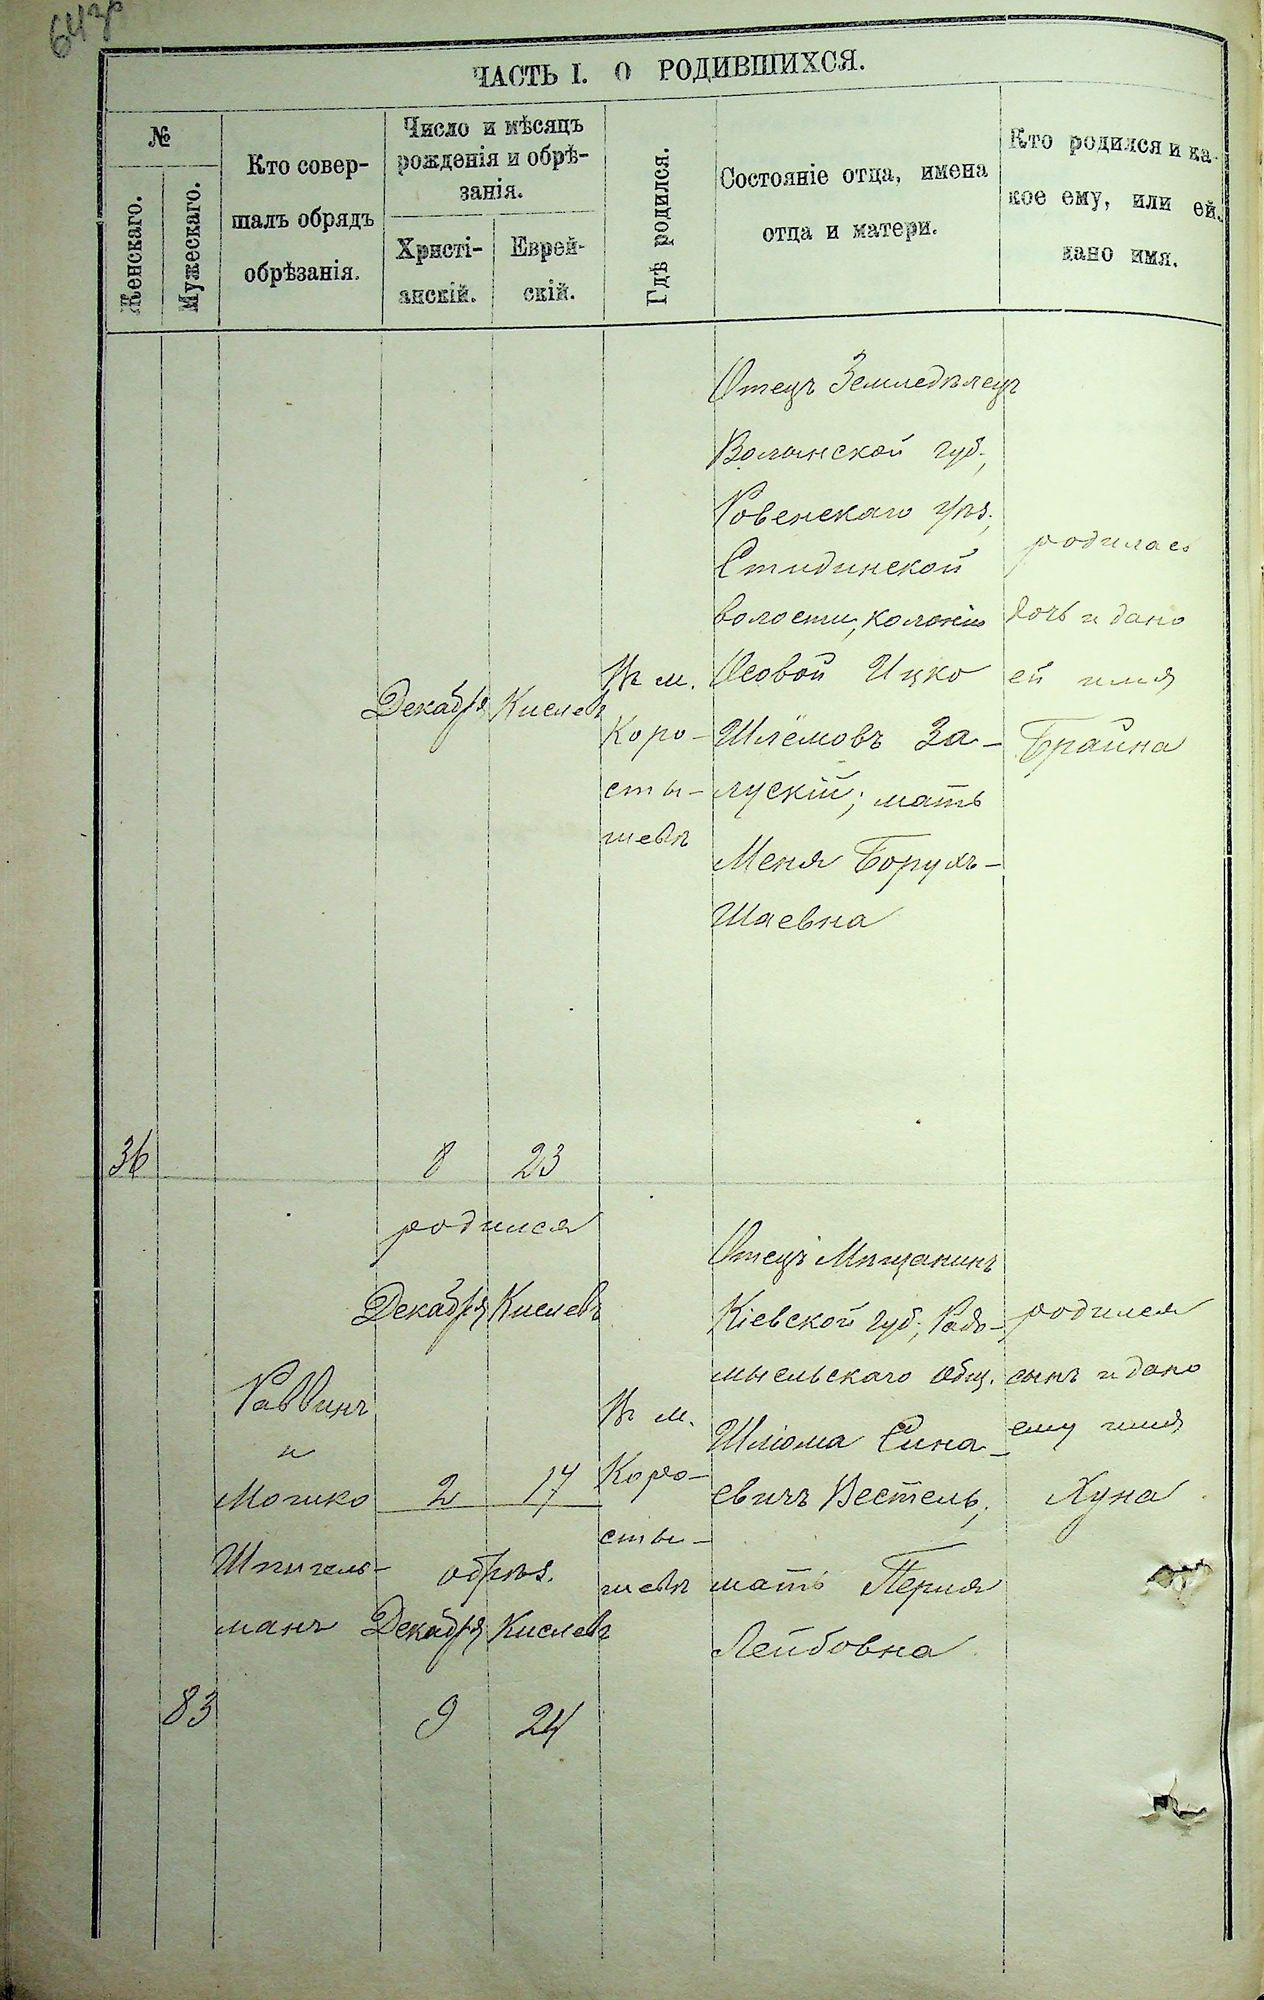 643р
ЧАСТЬ I. О РОДИВШИХСЯ.
№
Женскаго.
Мужескаго.
Кто совер-
шалъ обрядъ
обрѣзанія.
Число и мѣсяцъ
рожденія и обрѣ-
занія.
Христі-
анскій.
Еврей-
скій.
Гдѣ родился.
Состояніе отца, имена
отца и матери.
Кто родился и ка-
кое ему, или ей.
дано имя.
36
Декабря
8
Кислевъ
23
Въ м.
Коро-
сты-
шевѣ
Отецъ Земледѣлецъ
Волынской губ.,
Ровенскаго уѣз.,
Стидинской
волости, колоніи
Осовой Ицко
Шлёмовъ За-
лускій; мать
Меня Борухъ-
Шаевна
родилась
дочь и дано
ей имя
Брайна
83
Раввинъ
и
Мошко
Шпигель-
манъ
родился
Декабря Кислевъ
2 17
обрѣз.
Декабря Кислевъ
9 24
Въ м.
Коро-
сты-
шевѣ
Отецъ Мѣщанинъ
Кіевской губ., Радо-
мысльскаго общ.
Шлёма Сина-
евичъ Вестель,
мать Перля
Лейбовна
родился
сынъ и дано
ему имя
Хуна